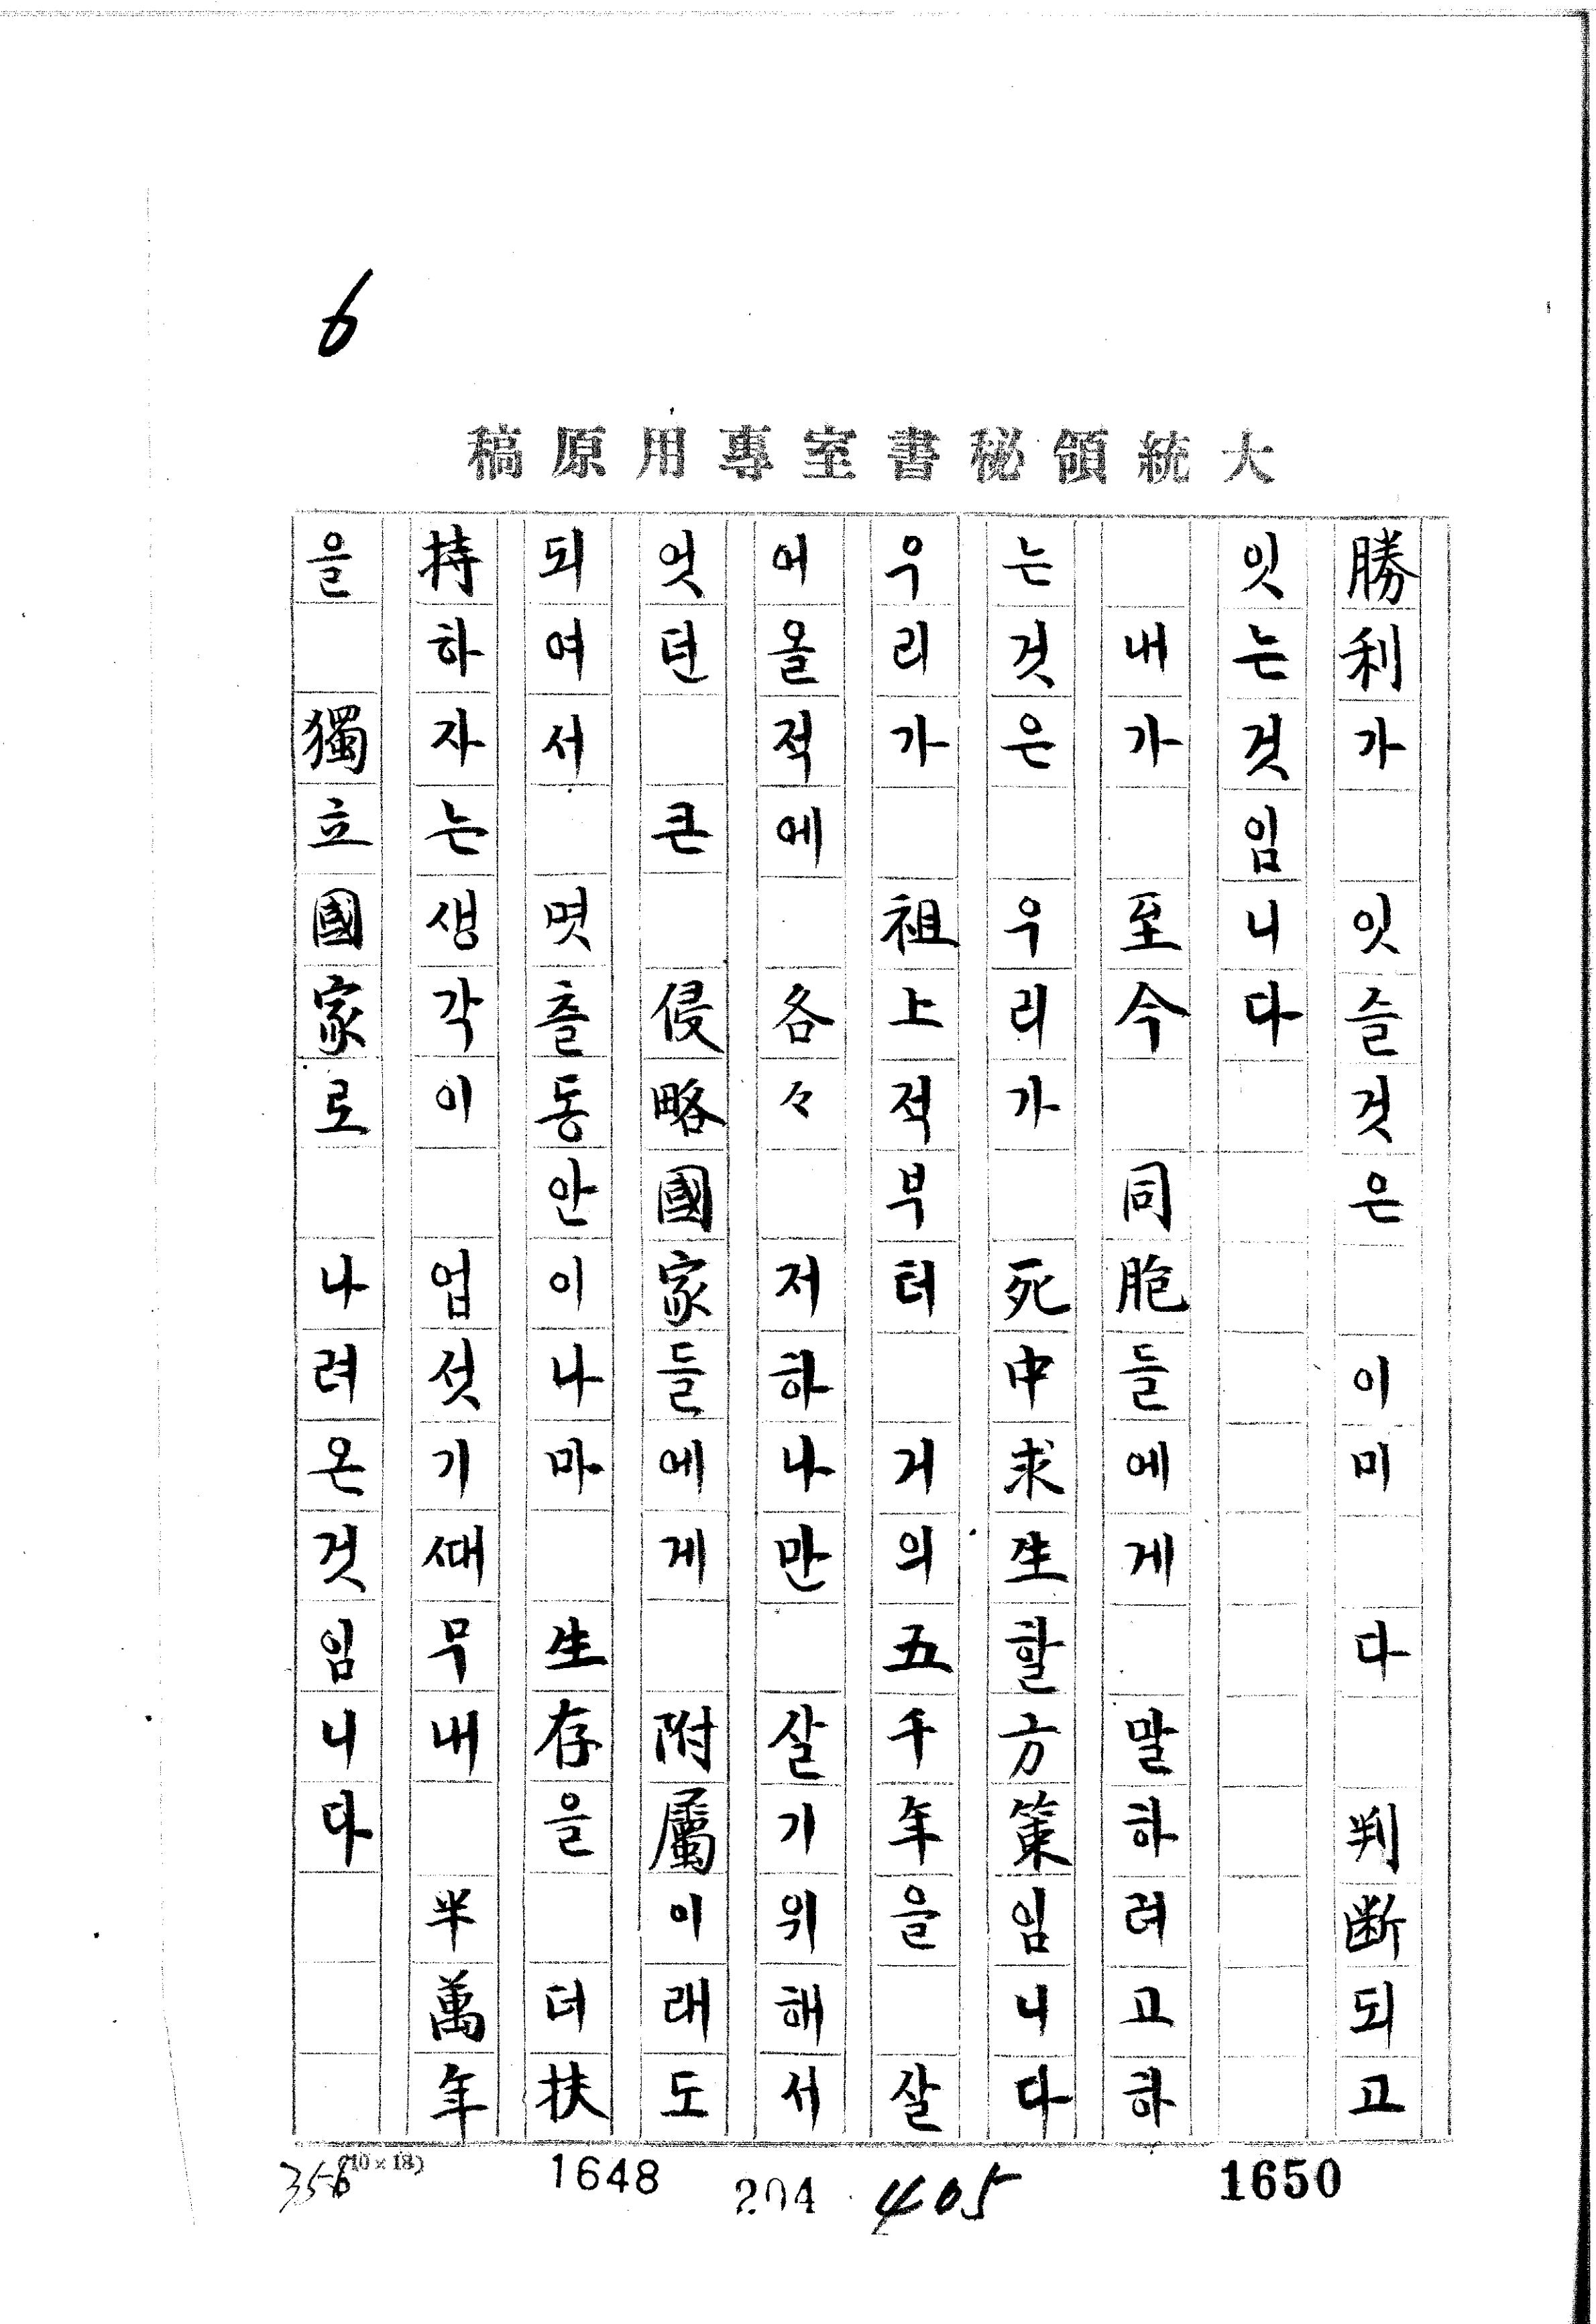 6
大統領秘書室專用原稿
勝利가 잇슬것은 이미 다 判断되고
잇는것임니다
내가 至今 同胞들에게 말하려고하
는것은 우리가 死中求生할方策임니다
우리가 祖上적부터 거의五千年을 살
어올적에 各々 저하나만 살기위해서
엇던 큰 侵略國家들에게 附屬이래도
되여서 몃츨동안이나마 生存을 더扶
持하자는생각이 업섯기때무내 半萬年
을 獨立國家로 나려온것임니다
356
(10×18)
1648
204
405
1650